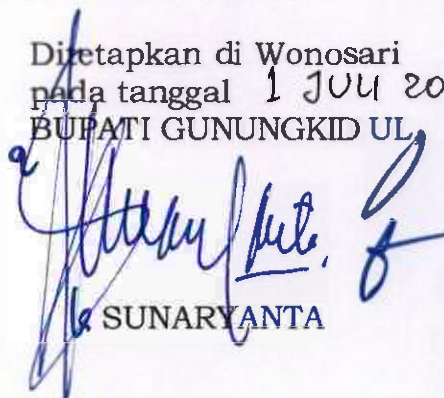 Ditetapkan di Wonosari
pada tanggal 1 JULI 20
BUPATI GUNUNGKIDUL,
SUNARYANTA